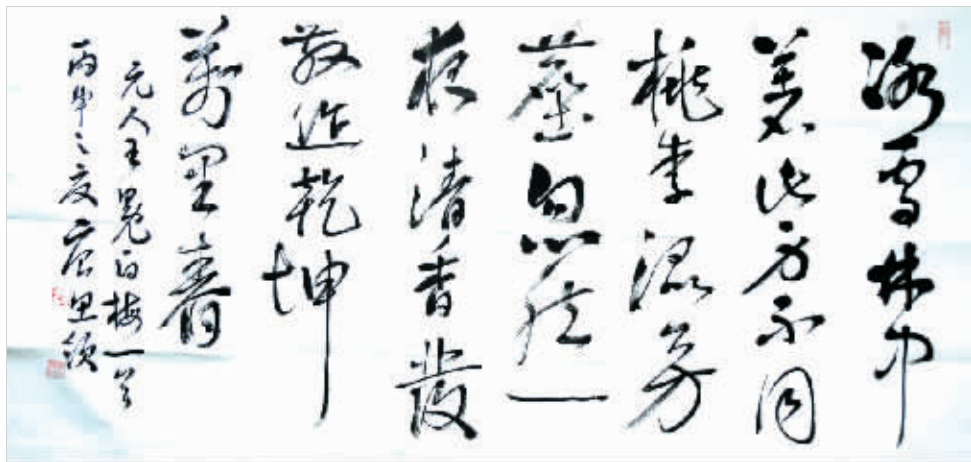 冰雪林中
著此身不同
桃李混芳
塵忽然一
夜清香發
散作乾坤
萬里春
元人王冕白梅一首
丙申之夏